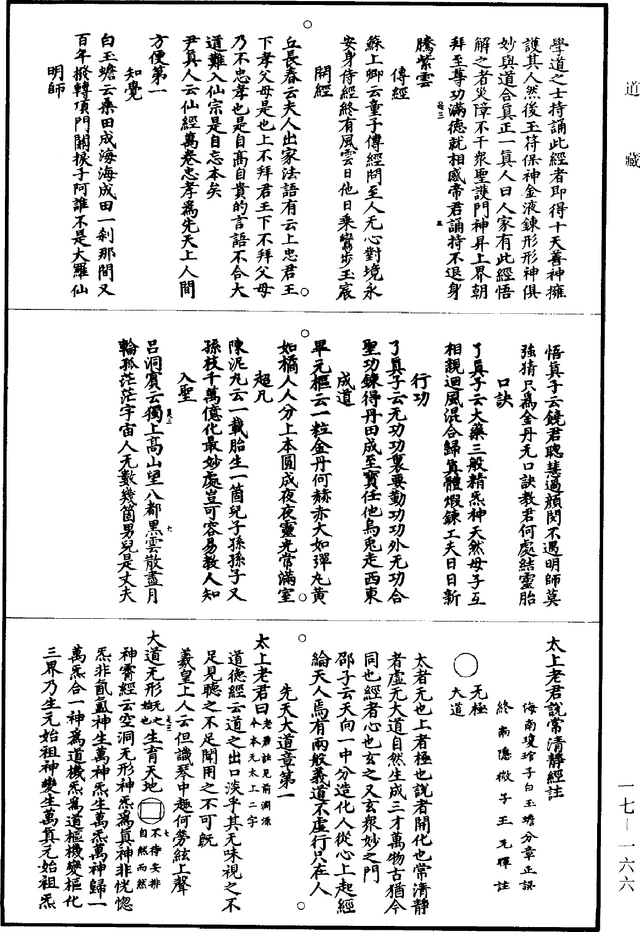 道藏
學道之士持誦此經者即得十天善神擁
護其人然後玉符保神金液鍊形形神俱
妙與道合真正一真人曰人家有此經悟
解之者災障不干衆聖護門神昇上界朝
拜至尊功滿德就相感帝君誦持不退身
騰紫雲
傳經
蘇上卿云童子傳經問至人无心對境永
安身侍經終有風雲日他日乘鸞步玉宸
開經
丘長春云夫人出家法語有云上忠君王
下孝父母是也上不拜君王下不拜父母
乃不忠孝也是自高自貴的言語不合大
道難入仙宗是自忘本矣
尹真人云仙經萬卷忠孝爲先天上人間
方便第一
知覺
白玉蟾云桑田成海海成田一刹那間又
百年撥轉頂門關捩子阿誰不是大羅仙
明師
悟真子云饒君聰慧過顏閔不遇明師莫
強猜只爲金丹无口訣教君何處結靈胎
口訣
了真子云大藥三般精炁神天然母子互
相親迴風混合歸真體煅鍊工夫日日新
行功
了真子云无功功裏要勤功功外无功合
聖功鍊得丹田成至寶任他烏兔走西東
成道
畢元樞云一粒金丹何赫赤大如彈丸黃
如橘人人分上本圓成夜夜靈光常滿室
超凡
陳泥丸云一載胎生一箇兒子孫孫子又
孫枝千萬億化最妙處豈可容易教人知
入聖
呂洞賓云獨上高山望八都黑雲散盡月
輪孤茫茫宇宙人无數幾箇男兒是丈夫
太上老君說常清静經註
海南瓊琯子白玉蟾分章正誤
終南隱微子王元暉註
无極
大道
太者无也上者極也說者開化也常清静
者虛无大道自然生成三才萬物古猶今
同也經者心也玄之又玄衆妙之門
邵子云天向一中分造化人從心上起經
綸天人焉有兩般義道不虛行只在人
先天大道章第一
太上老君曰老君註見前淵源本元太上二字
道德經云道之出口淡乎其无味視之不
足見聽之不足聞用之不可旣
羲皇上人云但識琴中趣何勞絃上聲
大道无形妙也生育天地不待安排自然而然
神霄經云空洞无形神炁爲真神非恍惚
炁非氤氳神生萬神炁生萬炁萬神歸一
萬炁合一神爲道機炁爲道樞機變樞化
三界乃生元始祖神變生萬真元始祖炁
一七—一六六